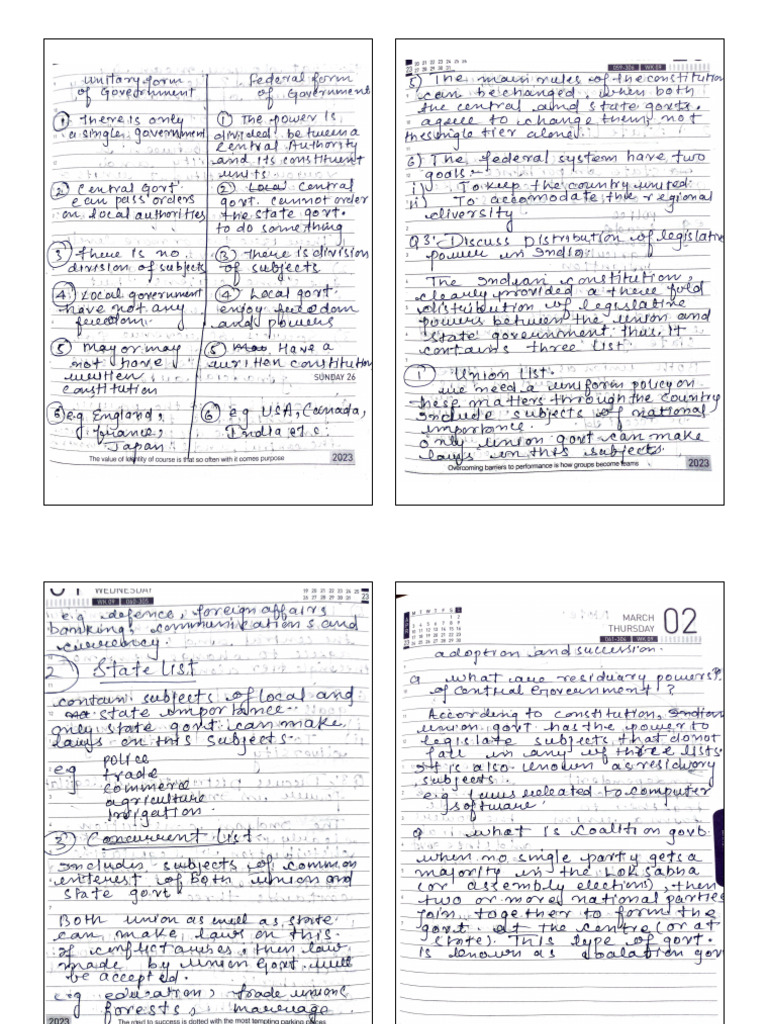 Unitary form
of Government
Federal form
of Government
① There is only
a single government
① The power is
divided between a
Central Authority
and its constituent
units
② Central govt.
can pass orders
on local authorities
② Central
govt. cannot order
the state govt.
to do something
③ There is no
division of subjects
③ there is division
of subjects
④ Local government
have not any
freedom.
④ Local govt.
enjoy freedom
and powers
⑤ May or may
not have
written
constitution
⑤ Have a
written constitution
SUNDAY 26
⑥ e.g England,
France,
Japan
⑥ e.g USA, Canada,
India etc.
The value of identity of course is that so often with it comes purpose
2023
059-306 WK 09
5) The main rules of the constitution
can be changed, when both
the central and state govts.
agree to change them, not
the single tier alone.
6) The federal system have two
goals:-
i) To keep the country united
ii) To accomodate the regional
diversity
Q3. Discuss Distribution of legislative
power in India.
The Indian constitution,
clearly provided a three fold
distribution of legislative
powers between the union and
state government thus. It
contains three list.
① Union List.
we need a uniform policy on
these matters through the country
include subjects of national
importance.
only union govt can make
laws on this subjects.
Overcoming barriers to performance is how groups become teams
2023
WEDNESDAY
WK 09 060-305
e.g defence, foreign affairs
banking, communications and
currency.
2) State List
contain subjects of local and
state importance.
only state govt can make
laws on this subjects.
e.g police
trade
commerce
agriculture
irrigation.
3) Concurrent List.
Includes subjects of common
interest of both union and
state govt
Both union as well as state
can make laws on this.
if conflict arises, then law
made by union govt will
be accepted.
e.g education, trade unions
forests, marriage
2023
The road to success is dotted with the most tempting parking places
MARCH
THURSDAY
02
061-304 WK 09
adoption and succession.
Q what are residuary powers
of Central Government?
According to constitution,
union govt has the power to
legislate subjects that do not
fall in any of three lists
It is also known as residuary
subjects.
e.g. laws related to computer
software
Q what is Coalition govt.
when no single party gets a
majority in the Lok Sabha
(or assembly election), then
two or more national parties
join together to form the
govt. at the centre (or at
state). This type of govt.
is known as coalation gov